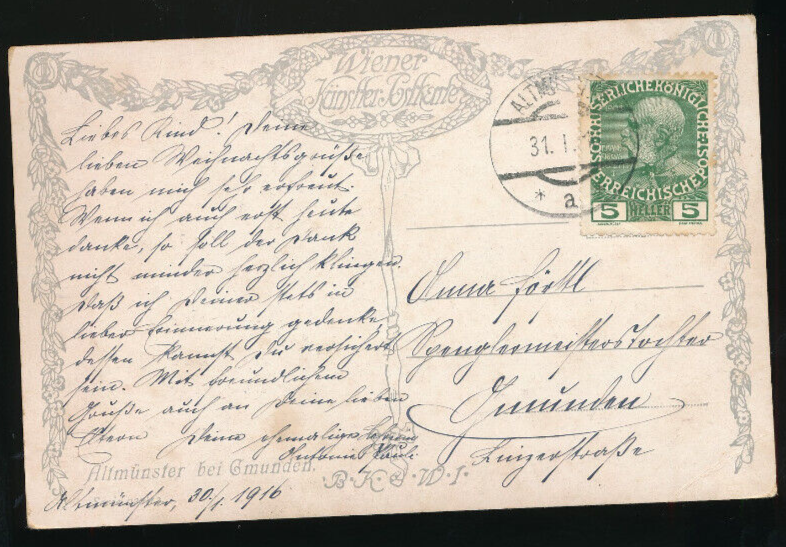 Wiener
Künstler-Postkarte
Liebes Kind! Deine
lieben Weihnachtsgrüße
haben mich sehr erfreut.
Wenn ich auch erst heute
danke, so soll der Dank
nicht minder herzlich klingen.
Daß ich Deiner stets in
lieber Erinnerung gedenke,
dessen kannst Du versichert
sein. Mit freundlichem
Gruße auch an Deine lieben
Eltern Deine ehemalige Lehrerin
Antonie
Altmünster bei Gmunden.
Altmünster, 30./I. 1916
B.K.W.I.
ALTM
31. I.
* a
KAISERLICHE KÖNIGLICHE
ÖSTERREICHISCHE
5 HELLER 5
Anna
Spenglermeisterstochter
Gmunden
Linzerstraße